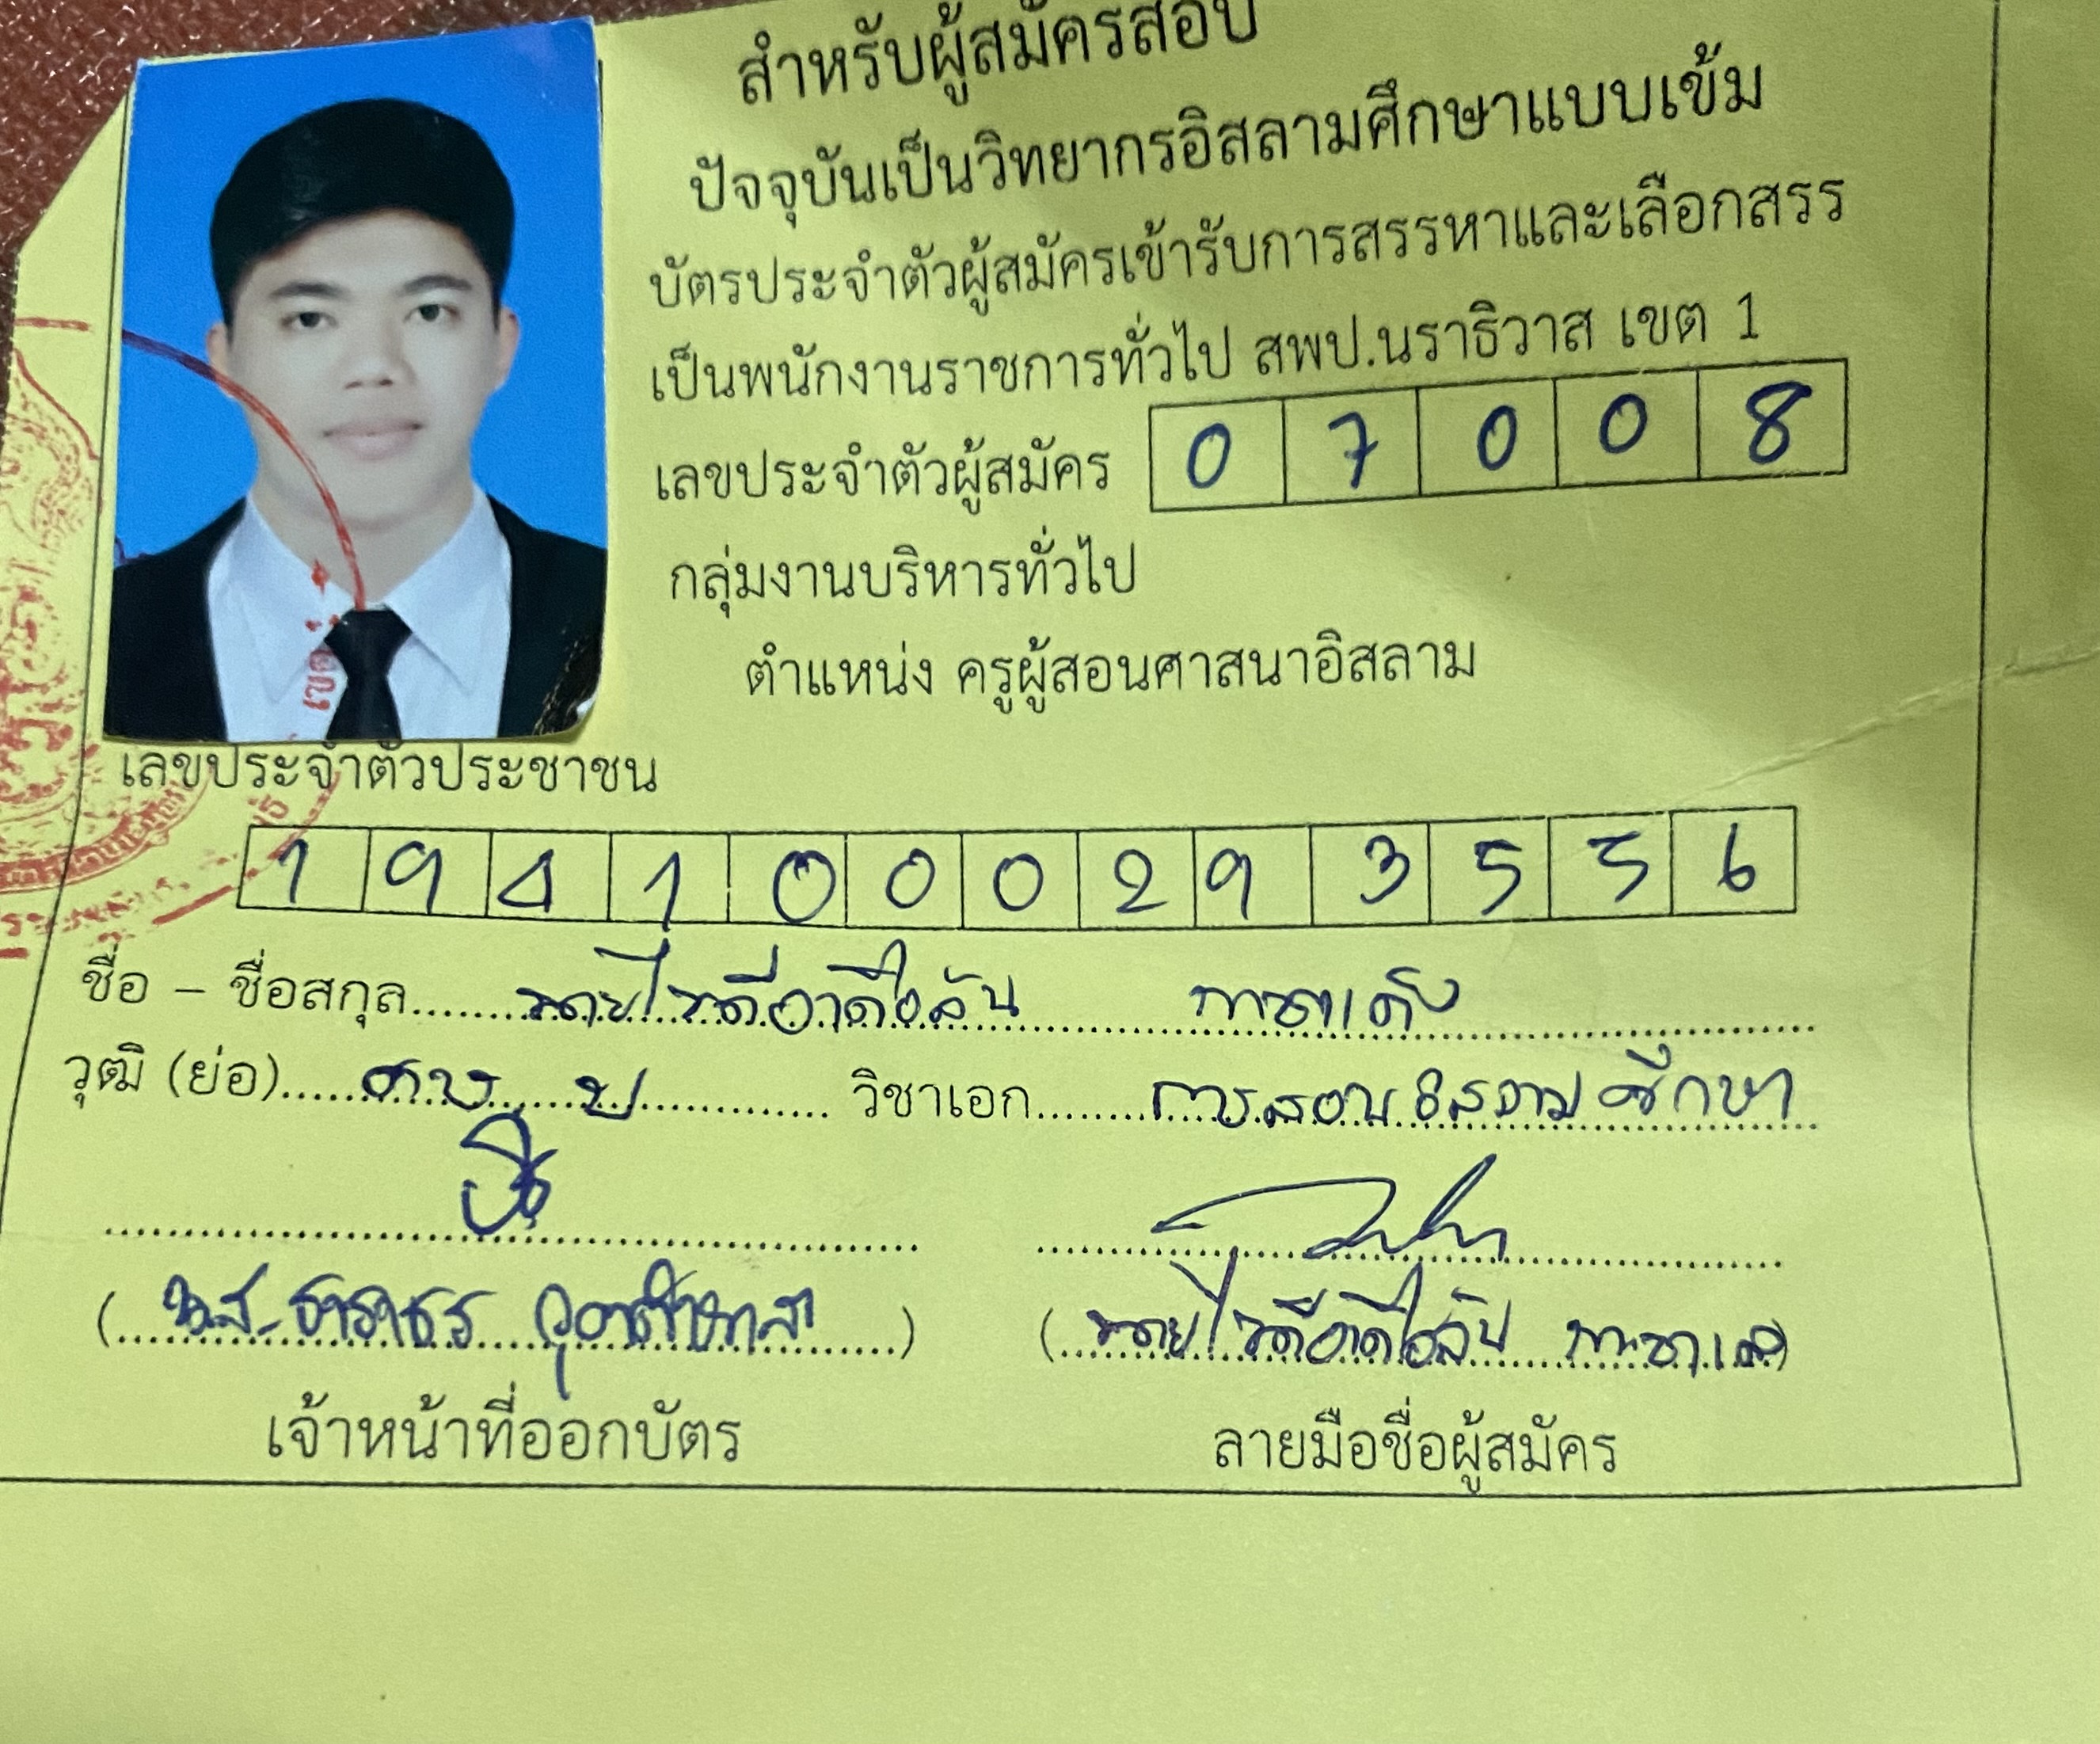 สำหรับผู้สมัครสอบ
ปัจจุบันเป็นวิทยากรอิสลามศึกษาแบบเข้ม
บัตรประจำตัวผู้สมัครเข้ารับการสรรหาและเลือกสรร
เป็นพนักงานราชการทั่วไป สพป.นราธิวาส เขต 1
เลขประจำตัวผู้สมัคร 0 7 0 0 8
กลุ่มงานบริหารทั่วไป
ตำแหน่ง ครูผู้สอนศาสนาอิสลาม
เลขประจำตัวประชาชน
1 9 4 1 0 0 0 2 9 3 5 5 6
ชื่อ – ชื่อสกุล
วุฒิ (ย่อ) ศษ.บ วิชาเอก การสอนอิสลามศึกษา
เจ้าหน้าที่ออกบัตร ลายมือชื่อผู้สมัคร